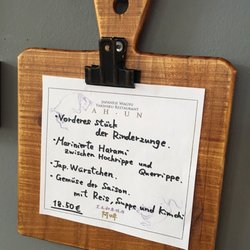 JAPANESE WAGYU
YAKINIKU RESTAURANT
AH-UN
• Vorderes stück
der Rinderzunge.
• Marinierte Harami
zwischen Hochrippe und Querrippe.
• Jap. Würstchen.
• Gemüse der Saison.
mit Reis, Suppe und Kimchi
18.50€